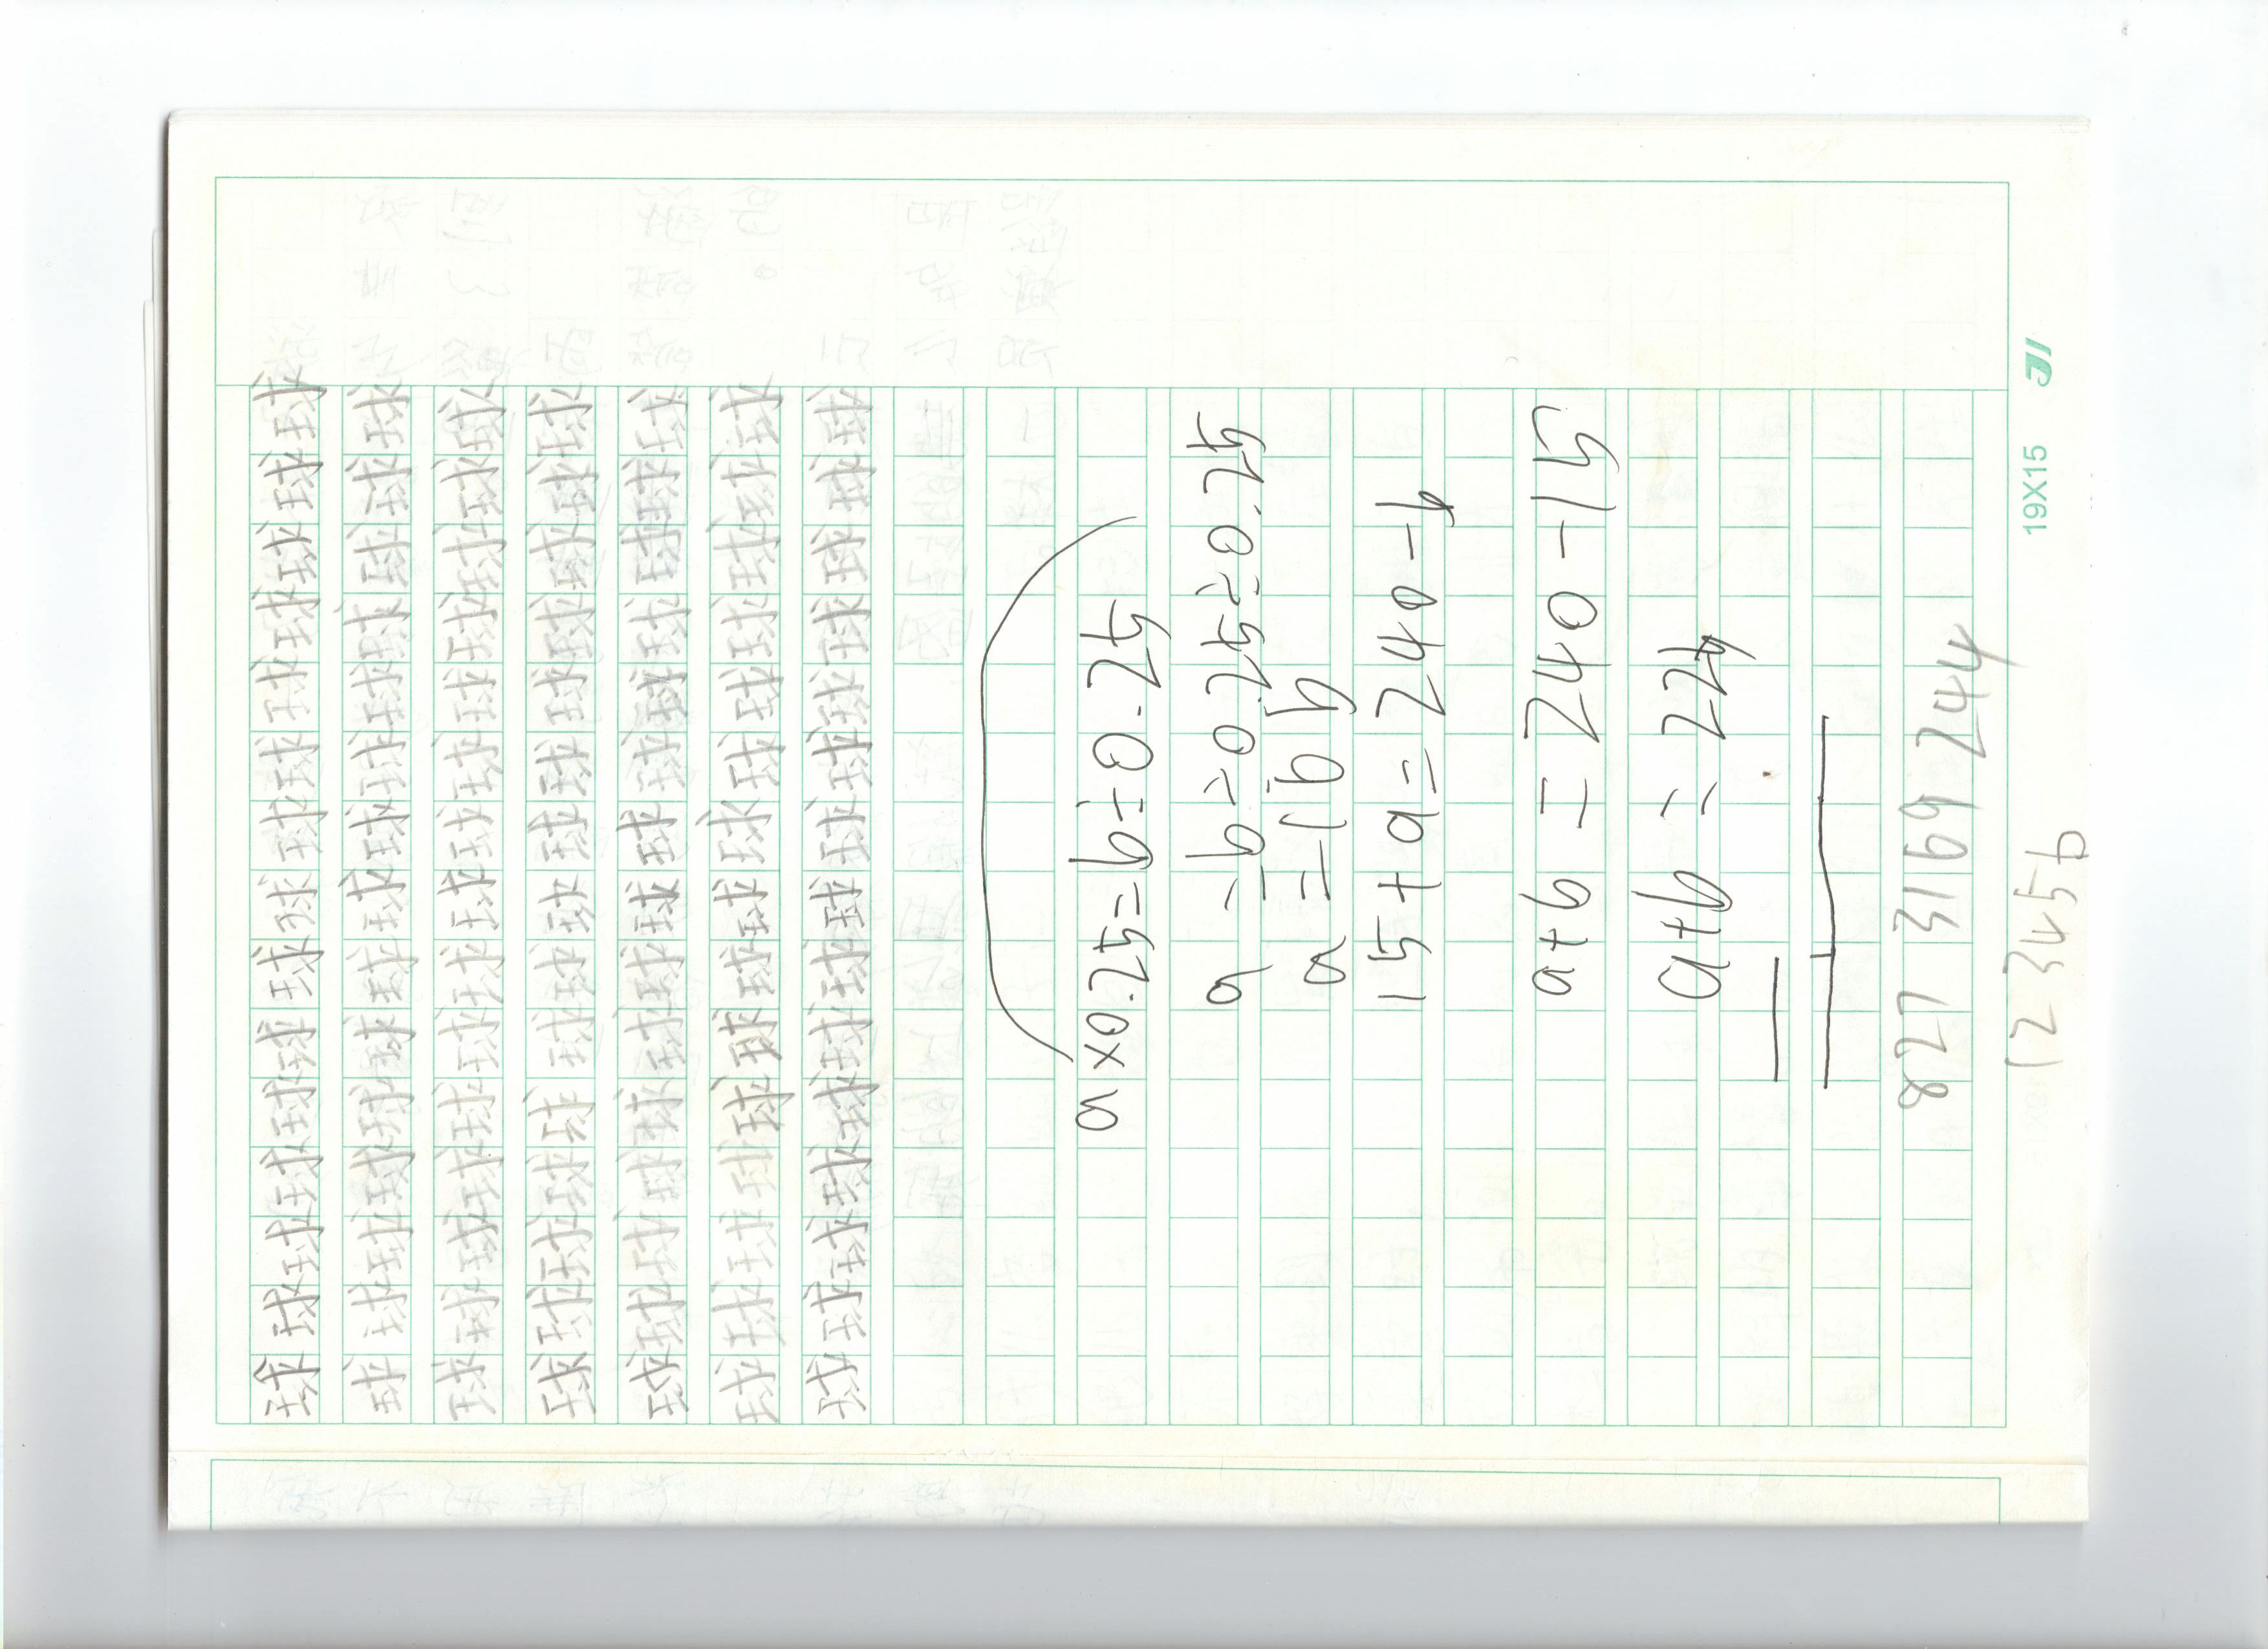 球球球球球球球球球球球球球球球
球球球球球球球球球球球球球球球
球球球球球球球球球球球球球球球
球球球球球球球球球球球球球球球
球球球球球球球球球球球球球球球
球球球球球球球球球球球球球球球
球球球球球球球球球球球球球球球
a×0.25=b÷0.25
a=b÷0.25÷0.25
a=16b
15+a=240-b
a+b=240-15
a+b=224
827 3169 244
123456
19X15